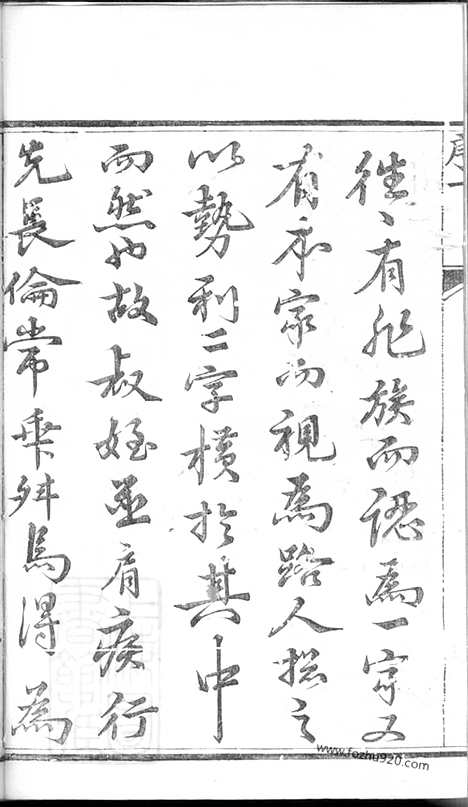 往〻有非族而認為一家又
有本家而視為路人揔之
以勢利二字橫於其中
而然也故叔姪並肩疾行
先長倫常乖舛焉得為
序一
www.fozhu920.com